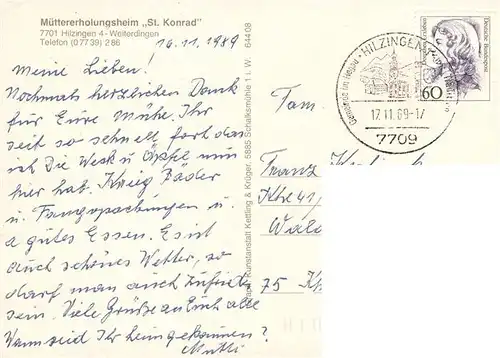 Müttererholungsheim „St. Konrad"
7701 Hilzingen 4 - Weiterdingen
Telefon (07739) 286
16.11.1989
Meine Lieben!
Nochmals herzlichen Dank
für Eure Mühe. Ihr
seid so schnell fort das
ich Die Wesk u Äpfel nun
hier hat. Kneig Bäder
u. Fangopackungen u.
a gutes Essen. Es ist
auch schönes Wetter, so
darf man auch zufrieden
sein. Viele Grüße an Euch alle
Wann seid Ihr heimgekommen?
Mutti
Kunstanstalt Kettling & Krüger, 5885 Schalksmühle 1 i. W. 64408
HILZINGEN
Gemeinde im Hegau
17.11.89-17
7709
Deutsche Bundespost
60
Fam.
Franz
41/
75